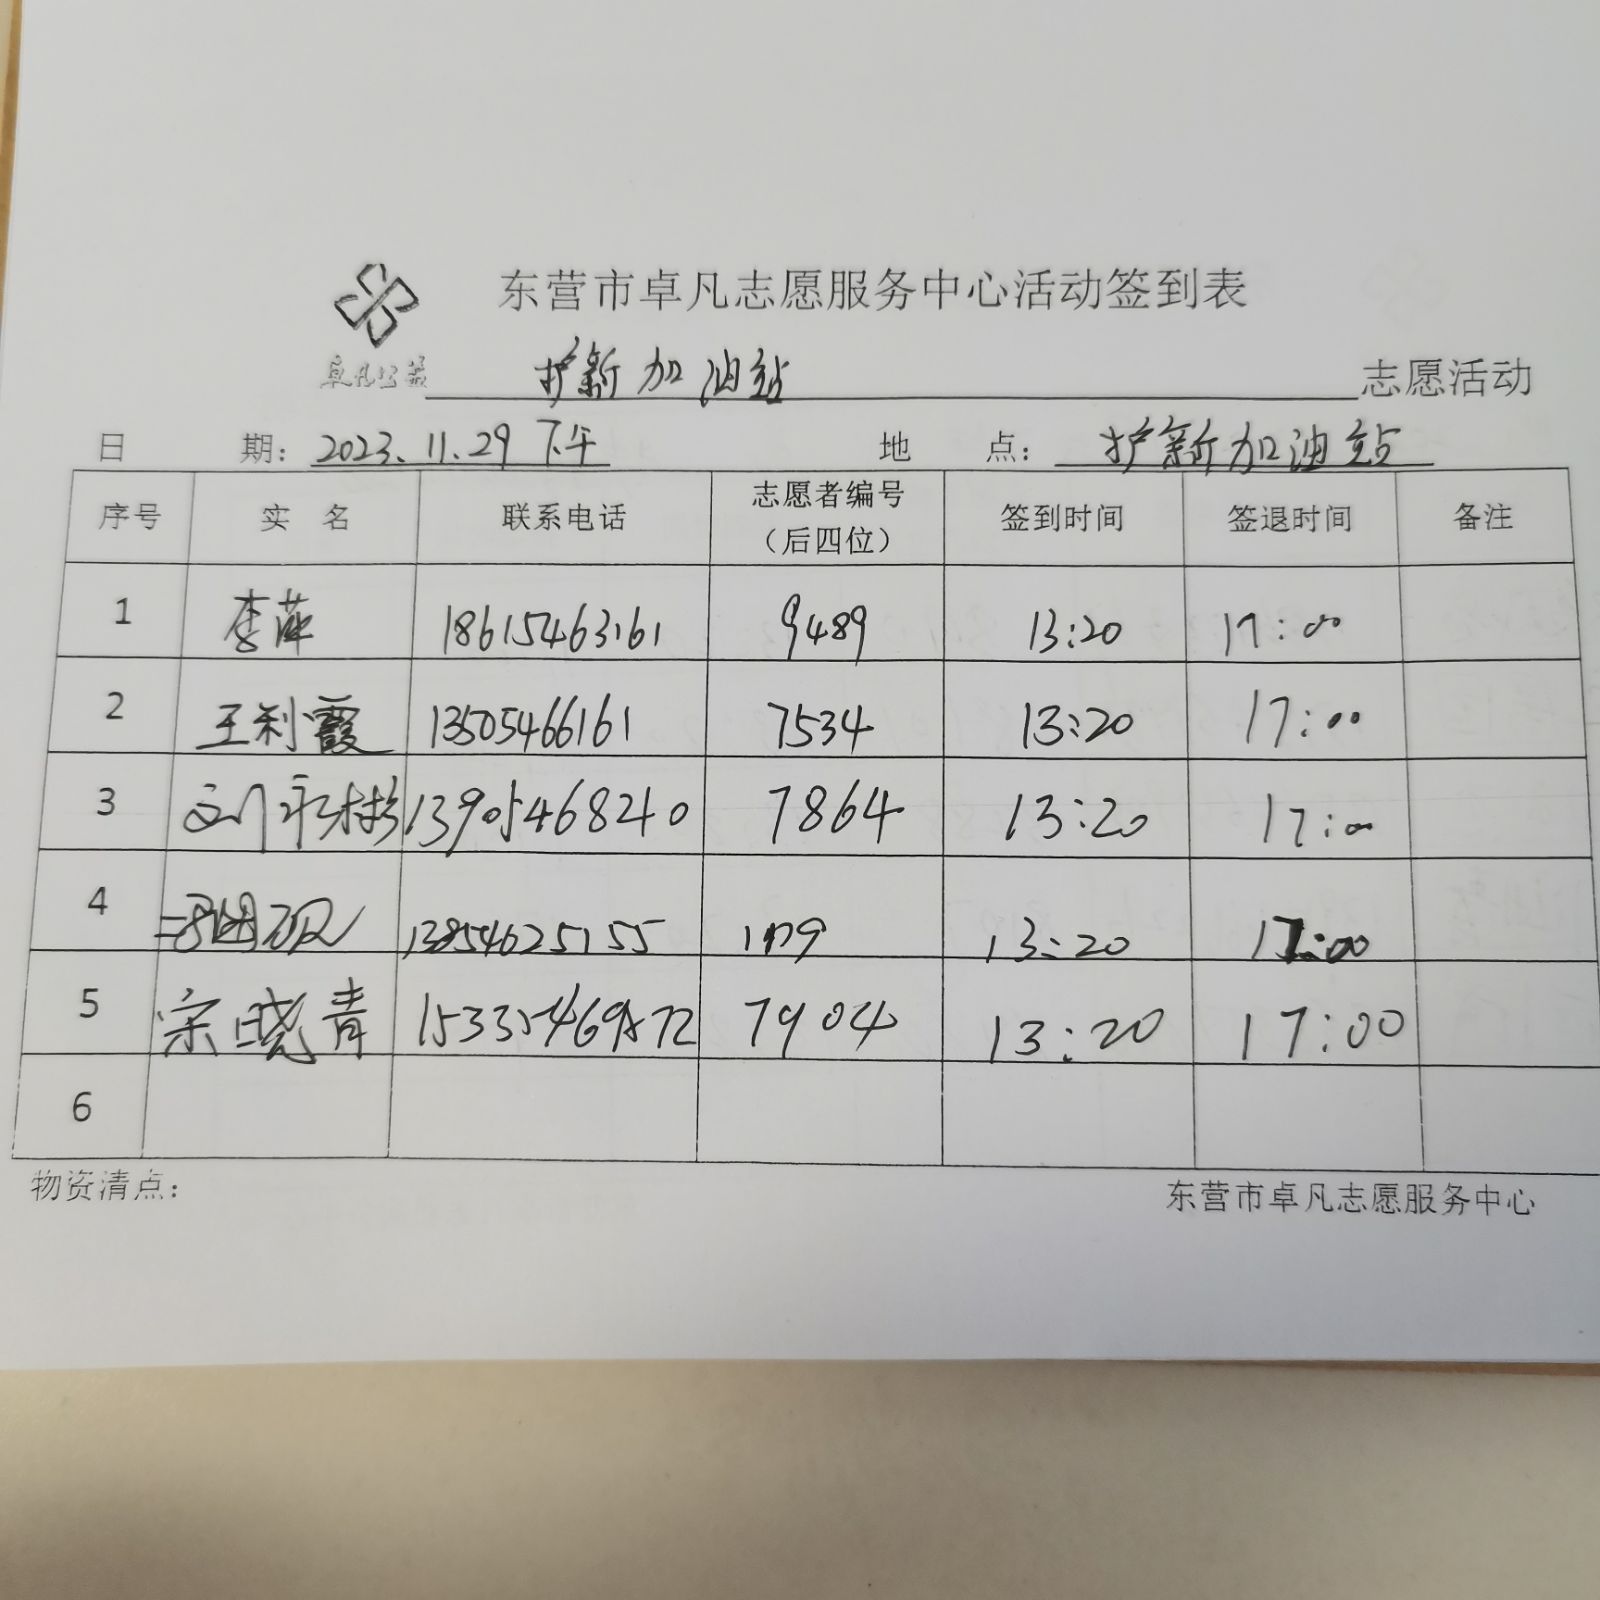 东营市卓凡志愿服务中心活动签到表
卓凡公益 护新加油站 志愿活动
日 期： 2023.11.29 下午 地 点： 护新加油站
序号 实 名 联系电话 志愿者编号（后四位） 签到时间 签退时间 备注
1 李萍 18615463161 9489 13:20 17:00
2 王利霞 13505466161 7534 13:20 17:00
3 刘永彬 13905468240 7864 13:20 17:00
4 13854625155 13:20 17:00
5 宋晓青 7904 13:20 17:00
6
物资清点： 东营市卓凡志愿服务中心